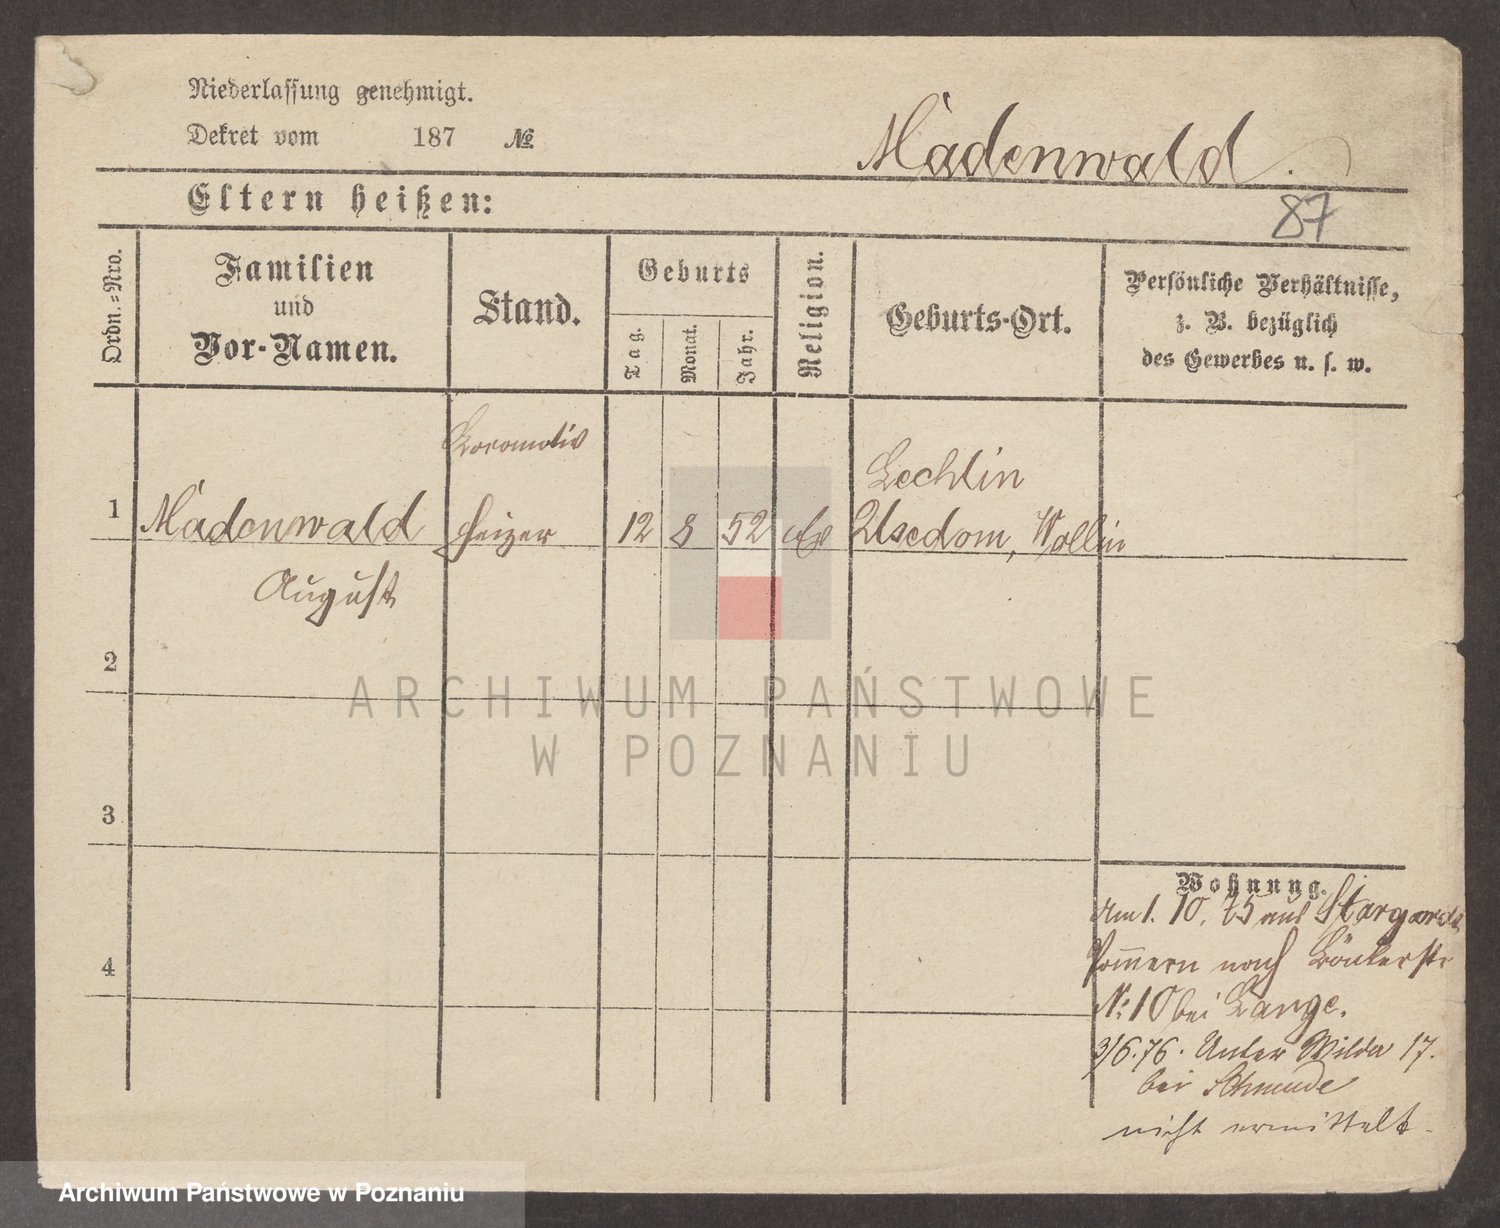 Niederlassung genehmigt.
Dekret vom 187 №
Madenwald.
87
Eltern heißen:
Ordn.=Nro.
Familien
und
Vor-Namen.
Stand.
Geburts
Tag.
Monat.
Jahr.
Religion.
Geburts-Ort.
Persönliche Verhältnisse,
z. B. bezüglich
des Gewerbes u. s. w.
1
Madenwald
August
Locomotiv
Heizer
12
8
52
Lechlin
Usedom, Wollin
2
3
4
Wohnung.
Am 1. 10. 75 aus Stargard
Pommern nach
№ 10 bei Lange.
3/6.76. Unter Wilda 17.
bei Schmude
nicht ermittelt.
ARCHIWUM PAŃSTWOWE
W POZNANIU
Archiwum Państwowe w Poznaniu